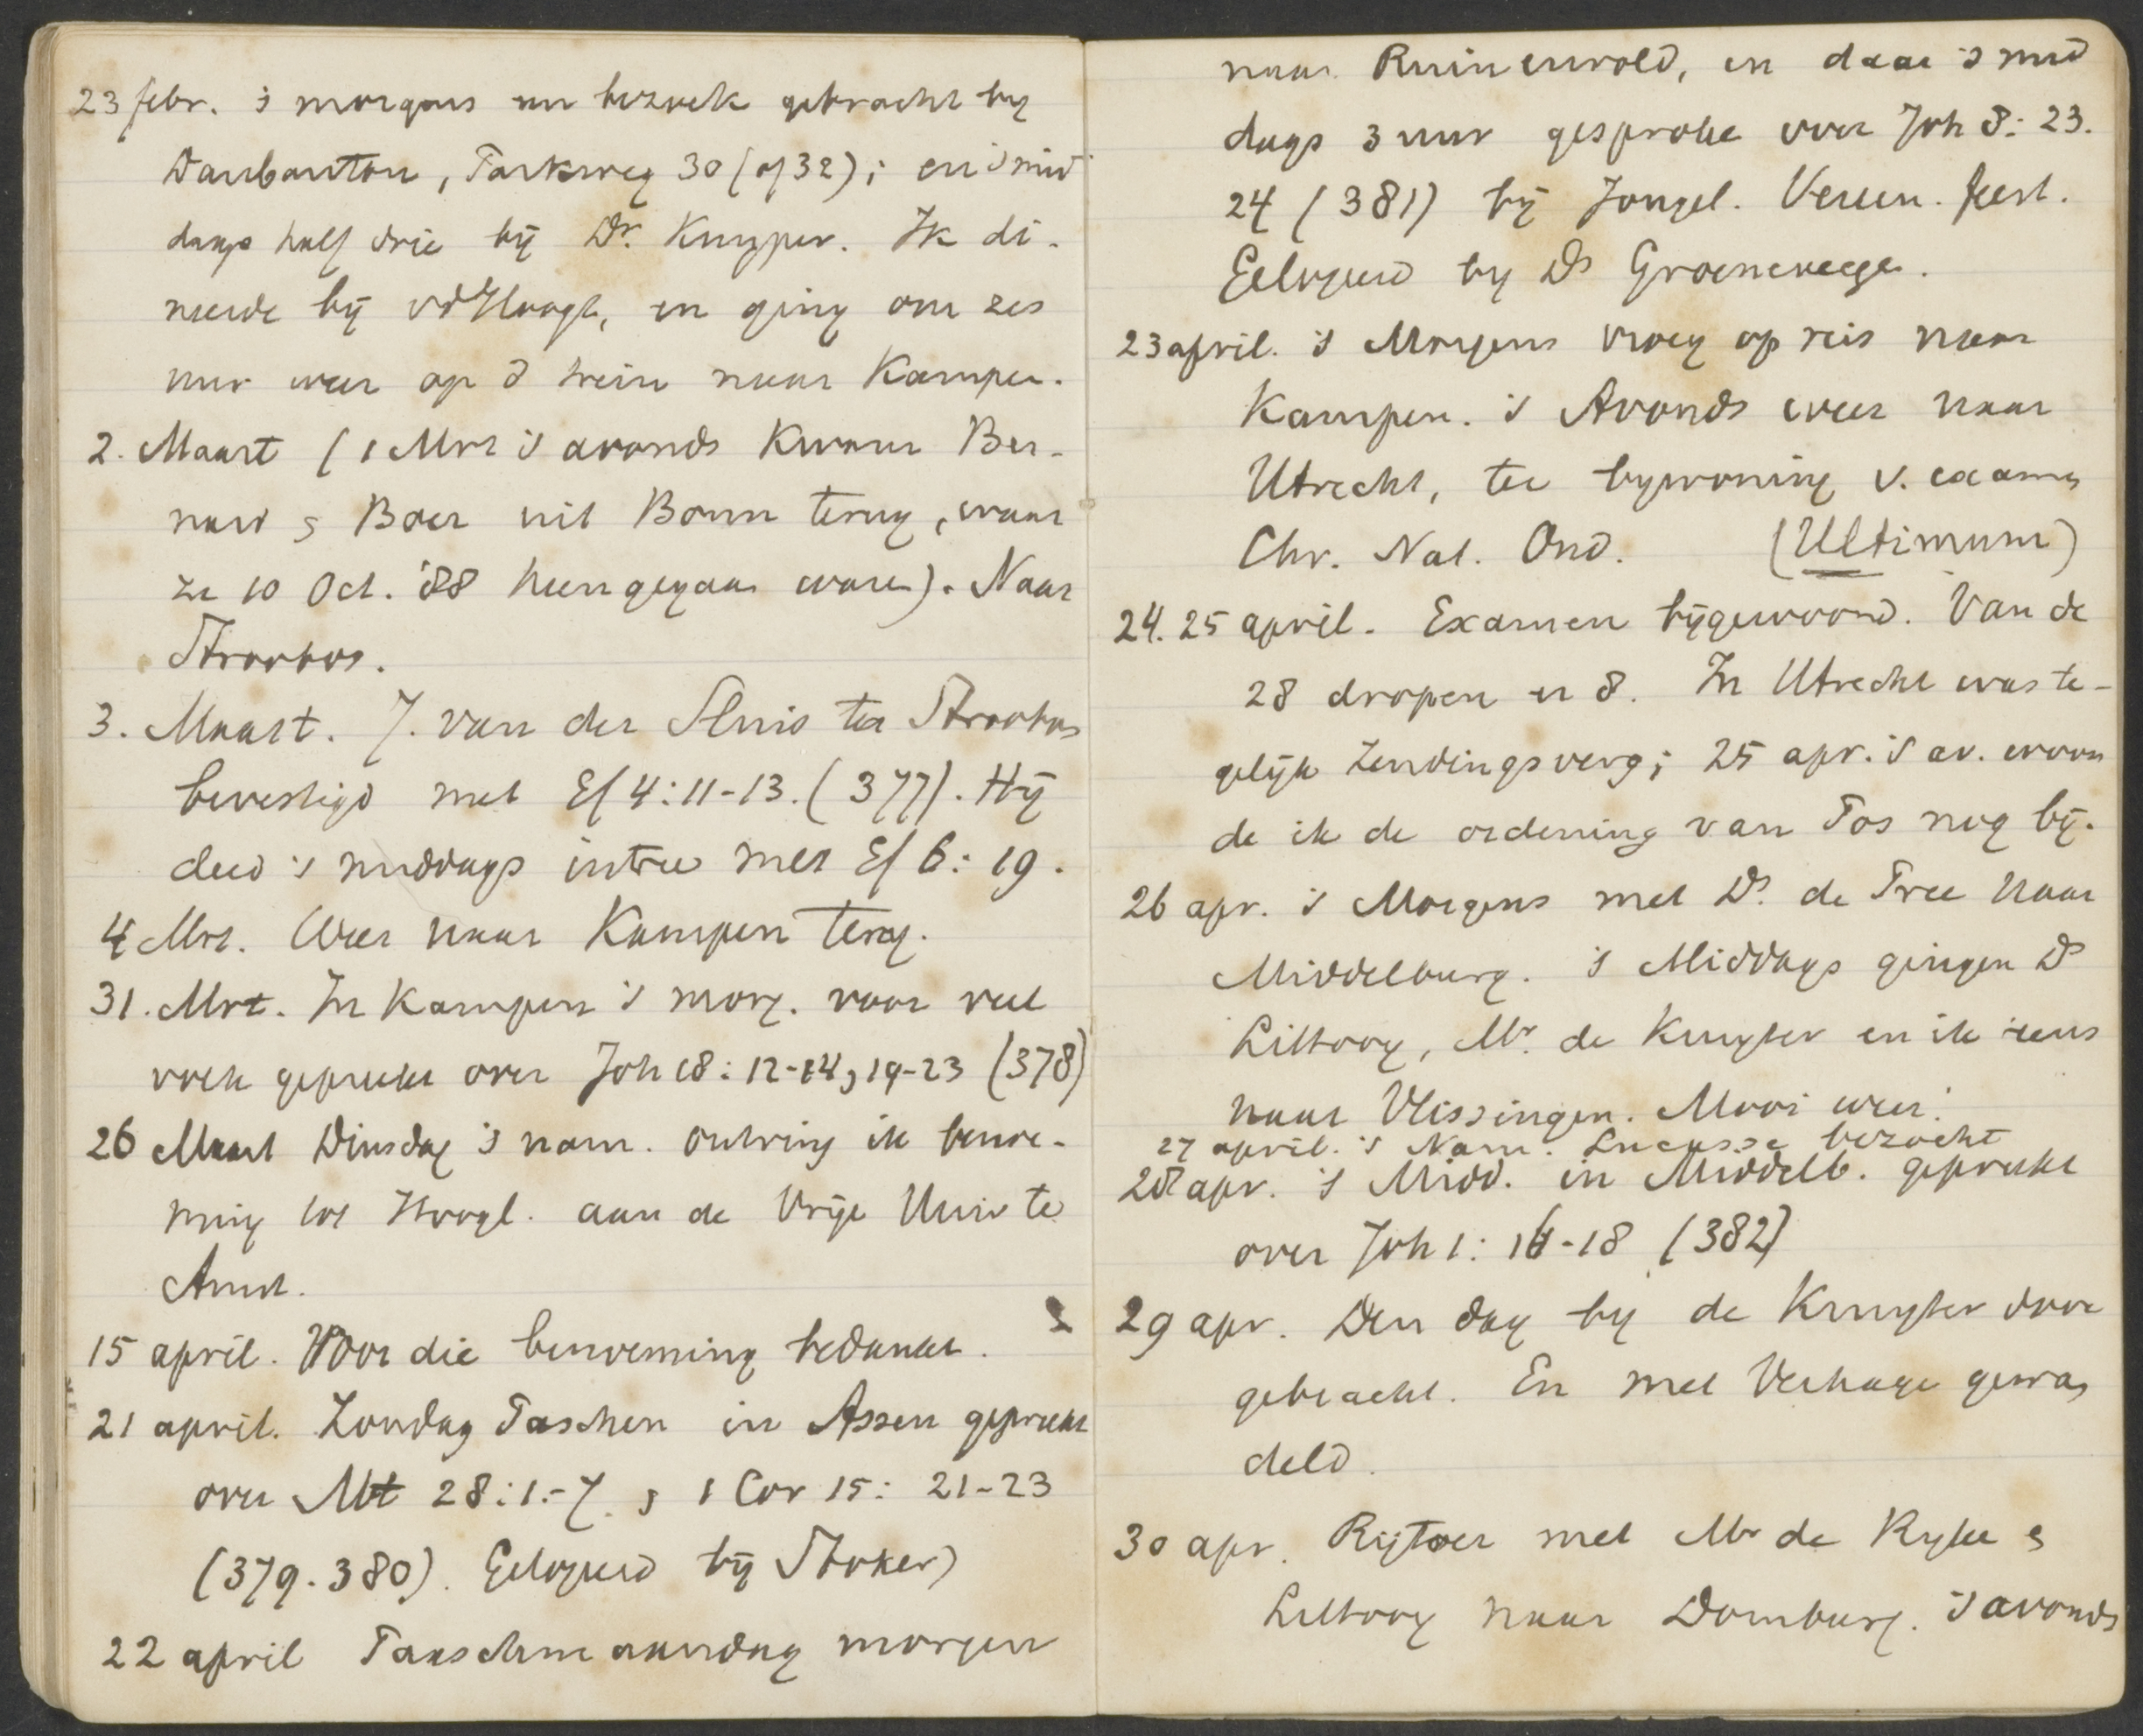 23 febr. 's morgens een bezoek gebracht by
Daubanton, Parkweg 30 (of 32); en 's mid
dags half drie bij Dr. Kuyper. Ik di-
neerde bij vd Hoogt, en ging om zes
uur weer op d trein naar Kampen.
2. Maart (1 Mrt 's avonds kwam Ber-
nard & Boer uit Bonn terug, waar
ze 10 Oct. '88 heengegaan waren). Naar
Stroobos.
3. Maart. J. van der Sluis te Stroobos
bevestigd met Ef 4:11-13. (377). Hij
deed 's middags intree met Ef 6:19.
4 Mrt. Weer naar Kampen terug.
31. Mrt. In Kampen 's morg. voor veel
volk gepreekt over Joh 18:12-14, 19-23 (378)
26 Maart Dinsdag 's nam. ontving ik benoe-
ming tot Hoogl. aan de Vrije Univ te
Amst.
15 april. Voor die benoeming bedankt.
21 april. Zondag Paschen in Assen gepreekt
over Mt 28:1-7. & 1 Cor 15:21-23
(379.380). Gelogeerd bij Stoker)
22 april Paaschmaandag morgen
naar Ruinerwold, en daar 's mid
dags 3 uur gesproke over Joh 8:23.
24 (381) bij Jongel. Vereen. feest.
Gelogeerd by Ds Groeneweege.
23 april. 's Morgens vroeg op reis naar
Kampen. 's Avonds weer naar
Utrecht, ter bywoning v. examen
Chr. Nat. Ond. (Ultimum)
24. 25 april. Examen bijgewoond. Van de
28 dropen er 8. In Utrecht was te-
gelijk Zendingsverg; 25 apr. 's av. woon
de ik de ordening van Pos nog bij.
26 apr. 's Morgens met Ds. de Pree naar
Middelburg. 's Middags gingen Ds
Littooy, Mr. de Kruyter en ik eens
naar Vlissingen. Mooi weer.
27 april. 's Nam. Lucasse bezocht
28 apr. 's Midd. in Middelb. gepreekt
over Joh 1:16-18 (382)
29 apr. Den dag by de Kruyter door
gebracht. En met Verhage gewan
deld.
30 apr. Rijtoer met Mr de Kryter &
Littooy naar Domburg. 's avonds